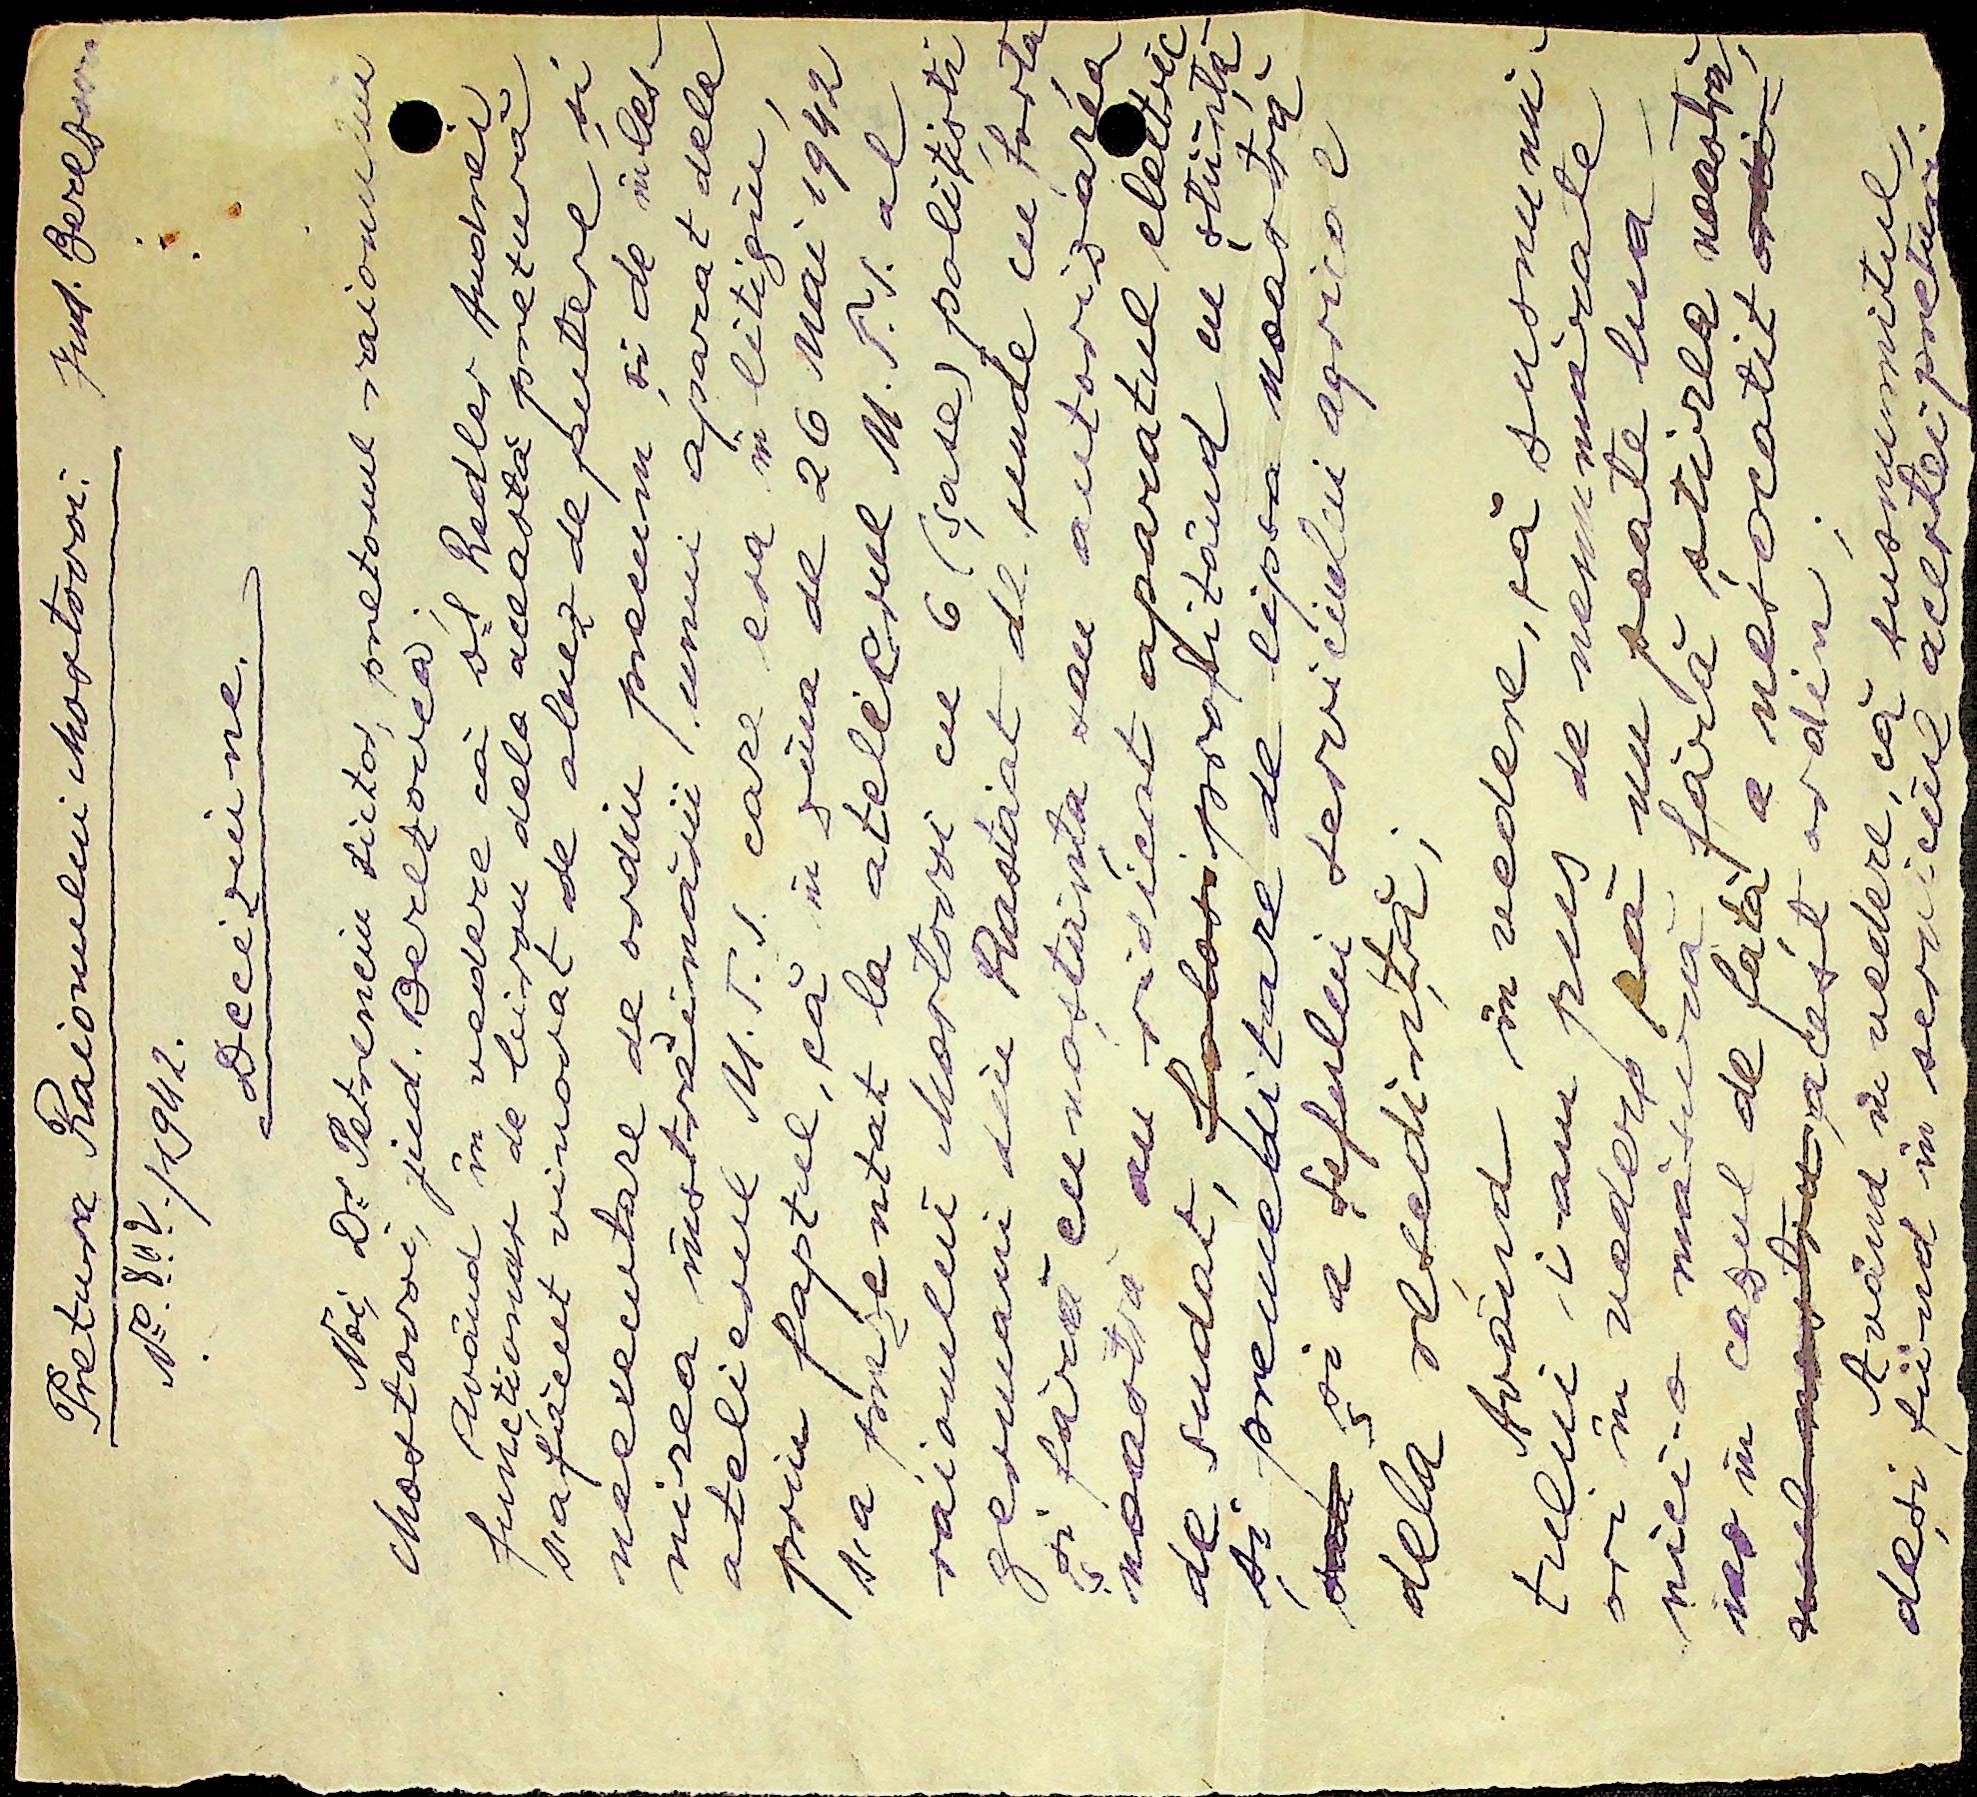 Pretura Raionului Mostovoi. Jud. Berezovca
No. 842/1942.
Deciziune.
Noi, Dr. Petrenciu Victor, pretorul raionului
Mostovoi, jud. Berezovca,
Având în vedere că dl Redler Andrei
funcționar de birou dela această pretură
s'a făcut vinovat de abuz de putere și
neexecutare de ordin precum și de înles-
nirea înstrăinării unui aparat dela
atelierul M.T.S. care era în litigiu,
prin faptul, că în ziua de 26 Mai 1942
s'a prezentat la atelierul M.T.S. al
raionului Mostovoi cu 6 (șase) polițiști
germani din Rastadt de unde cu forța
și fără cunoștința sau autorizarea
noastră au ridicat aparatul electric
de sudat, profitând cu știință
și premeditare de lipsa noastră
și a șefului serviciului agricol
dela reședință;
Având în vedere, că susnumi-
tului i-am pus de nenumărate
ori în vedere să nu poate lua
nici-o măsură fără știrea noastră,
iar în cazul de față a nesocotit
acest ordin;
Având în vedere, că susnumitul,
deși fiind în serviciul acestei preturi,